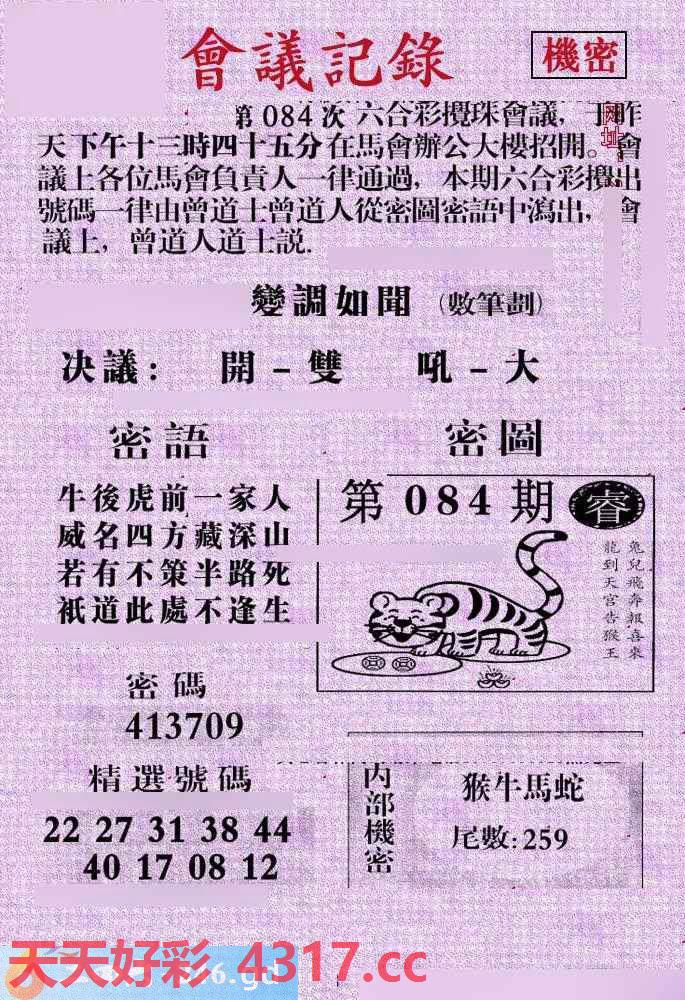 會議記錄
機密
网址:
第084次 六合彩攪珠會議，于昨
天下午十三時四十五分在馬會辦公大樓招開。會
議上各位馬會負責人一律通過，本期六合彩攪出
號碼一律由曾道士曾道人從密圖密語中瀉出，會
議上，曾道人道士説.
變調如聞（數筆劃）
决議： 開－雙 吼－大
密語
牛後虎前一家人
威名四方藏深山
若有不策半路死
祇道此處不逢生
密圖
第084期
睿
兔兒飛奔報喜來
龍到天宮告猴王
密碼
413709
精選號碼
22 27 31 38 44
40 17 08 12
内部機密
猴牛馬蛇
尾數:259
天天好彩 4317.cc
6.gd